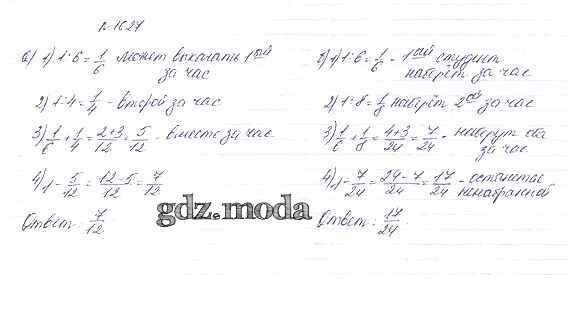 № 1627
а) 1) 1:6 = 1/6 может выкачать 1ый
за час
2) 1:4 = 1/4 - второй за час
3) 1/6 + 1/4 = 2+3/12 = 5/12 - вместе за час
4) 1 - 5/12 = 12-5/12 = 7/12
Ответ: 7/12
б) 1) 1:6 = 1/6 - 1ый студент
наберёт за час
2) 1:8 = 1/8 наберёт 2ой за час
3) 1/6 + 1/8 = 4+3/24 = 7/24 - наберут оба
за час
4) 1 - 7/24 = 24-7/24 = 17/24 - останется
ненабранной
Ответ: 17/24
gdz.moda